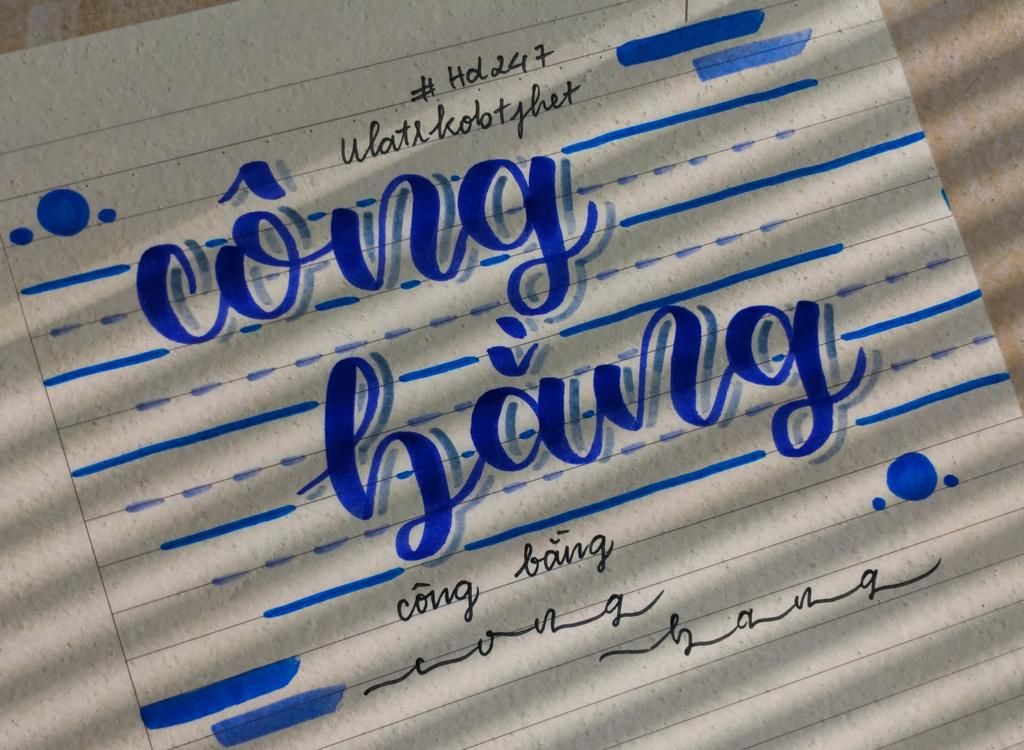 # Hd247
công
bằng
công bằng
cong bang